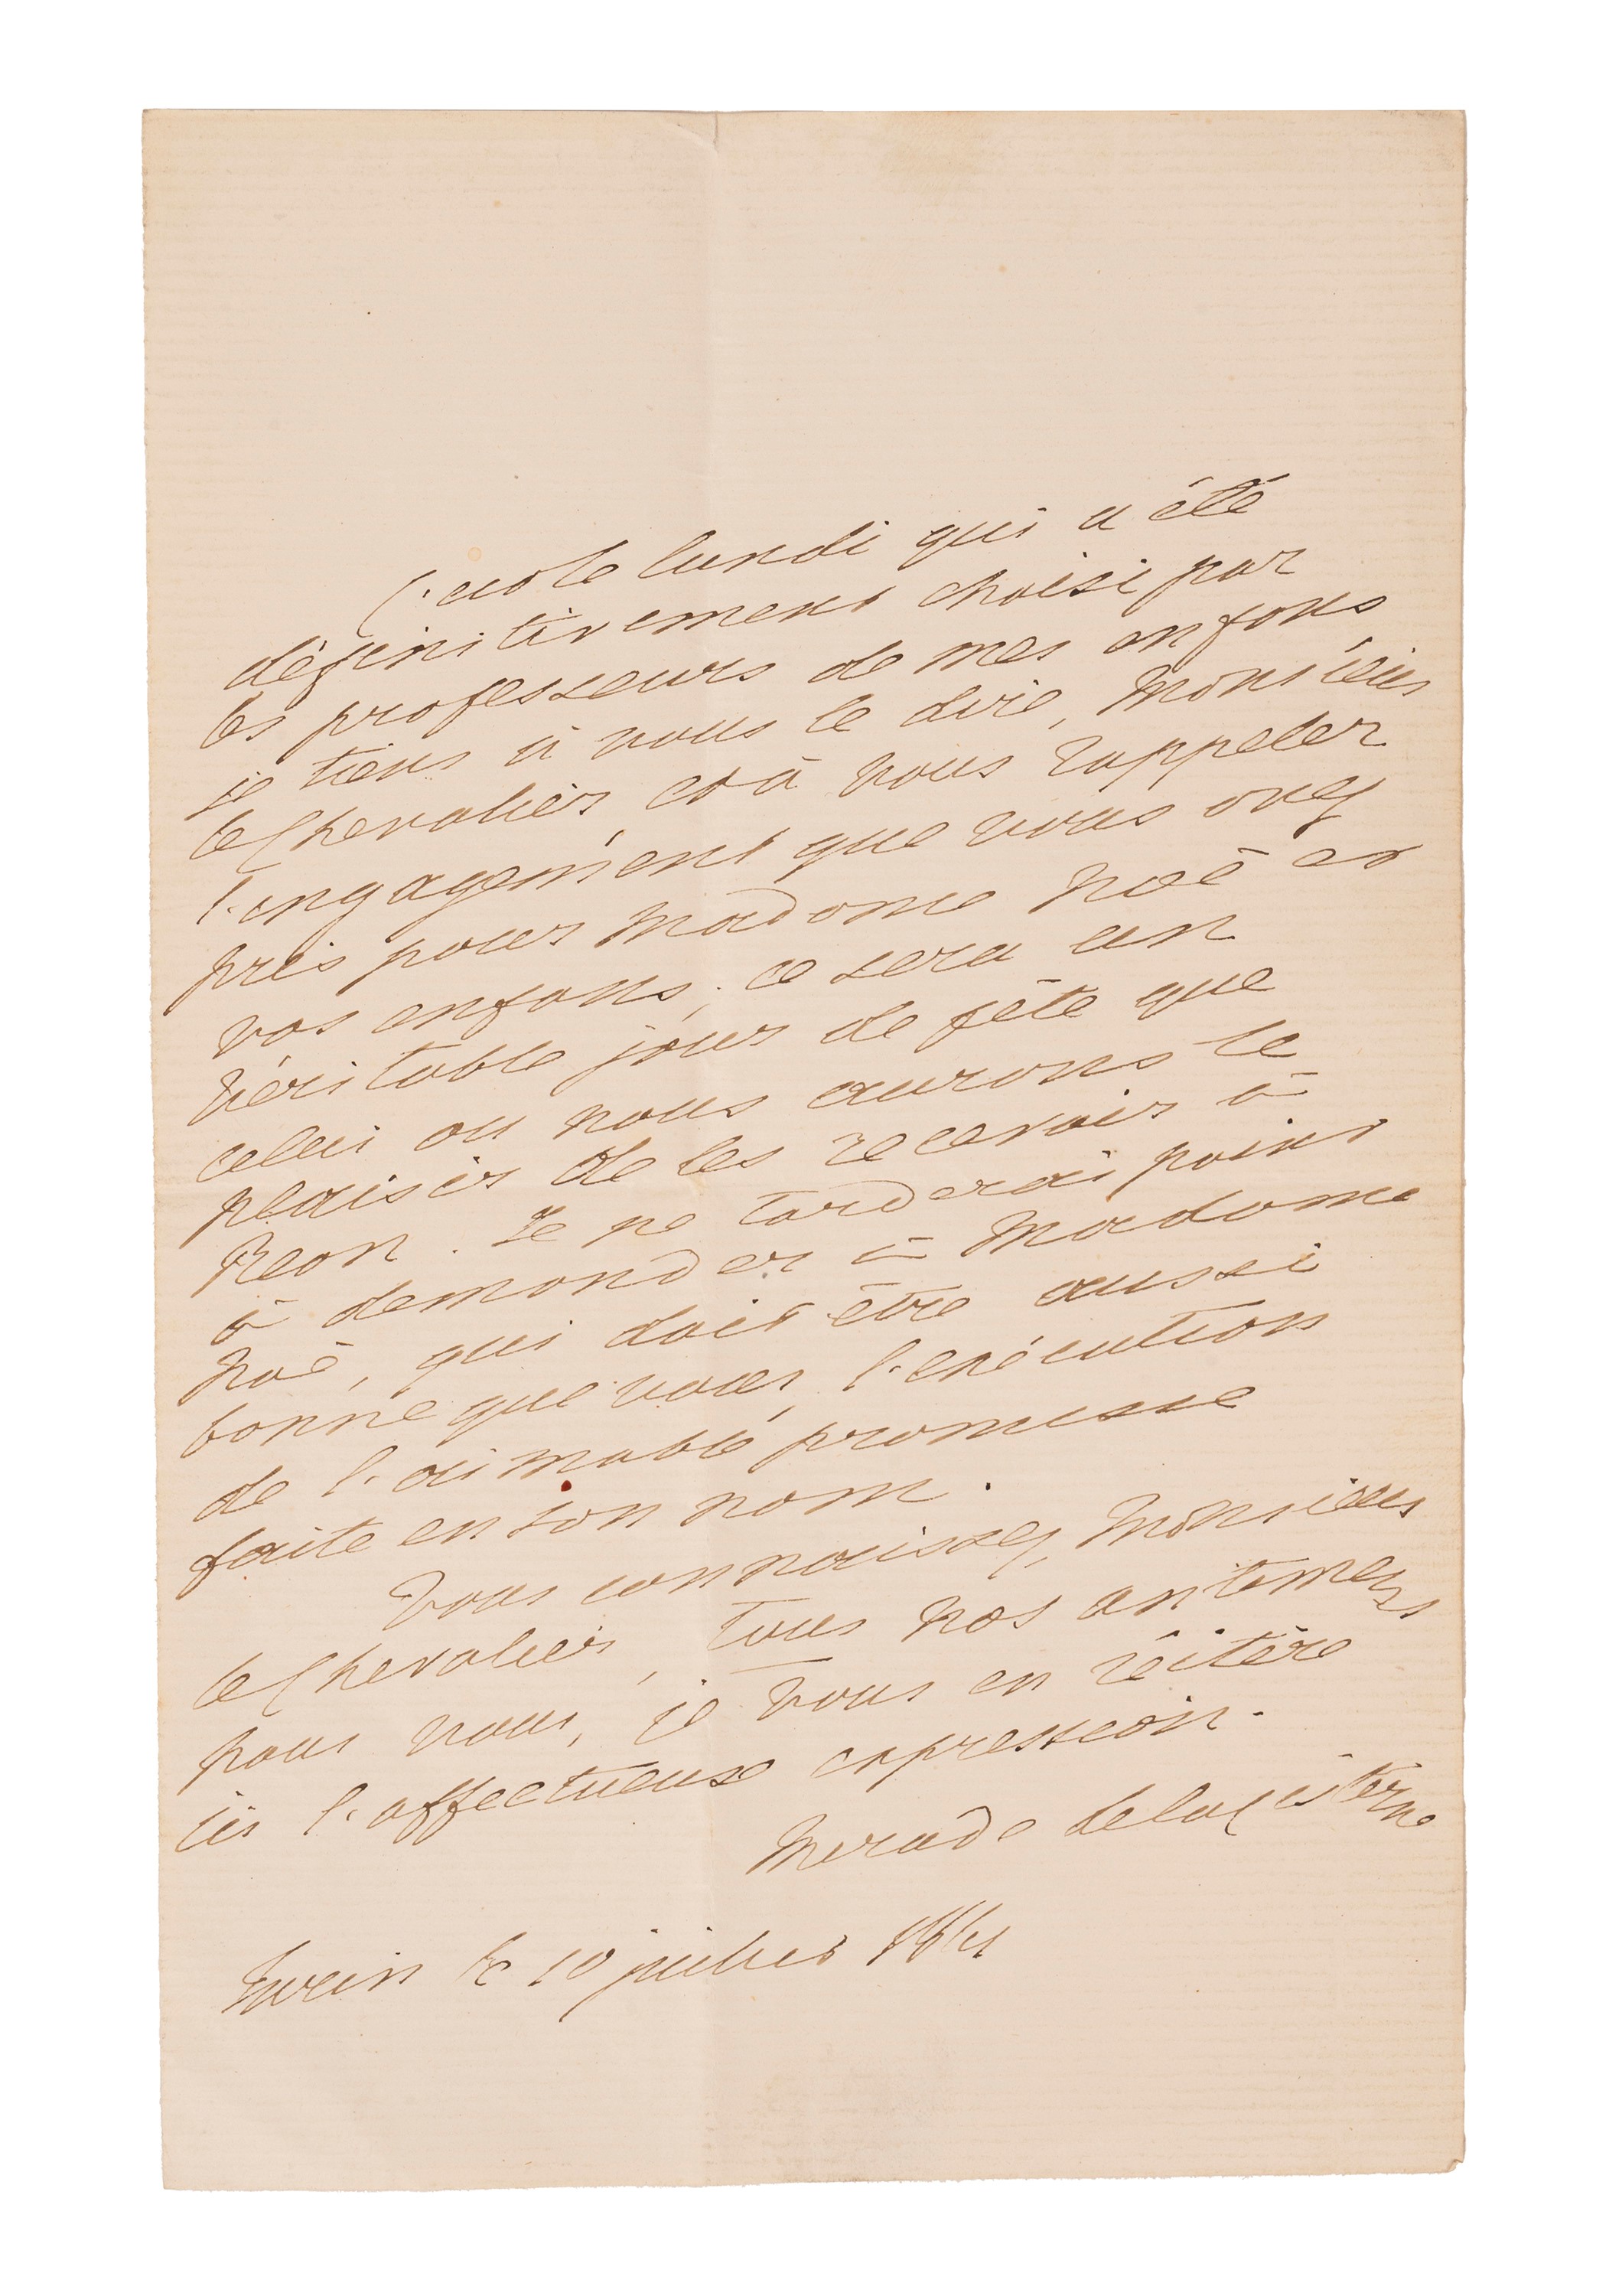 C'est le lundi qui a été
définitivement choisi par
les professeurs de mes enfans
je tiens à vous le dire, Monsieur
le Chevalier, et à vous rappeler
l'engagement que vous avez
pris pour Madame Noë et
vos enfans; ce sera un
véritable jour de fête que
celui ou nous aurons le
plaisir de les recevoir à
Rean. Je ne tarderai point
à demander à Madame
Noë, qui doit être aussi
bonne que vous, l'exécution
de l'aimable promesse
faite en son nom.
Vous connaissez, Monsieur
le Chevalier, tous nos
pour vous, je vous en réitère
ici l'affectueuse expression.
Merode de la Cisterne
Turin le 10 juillet 1861